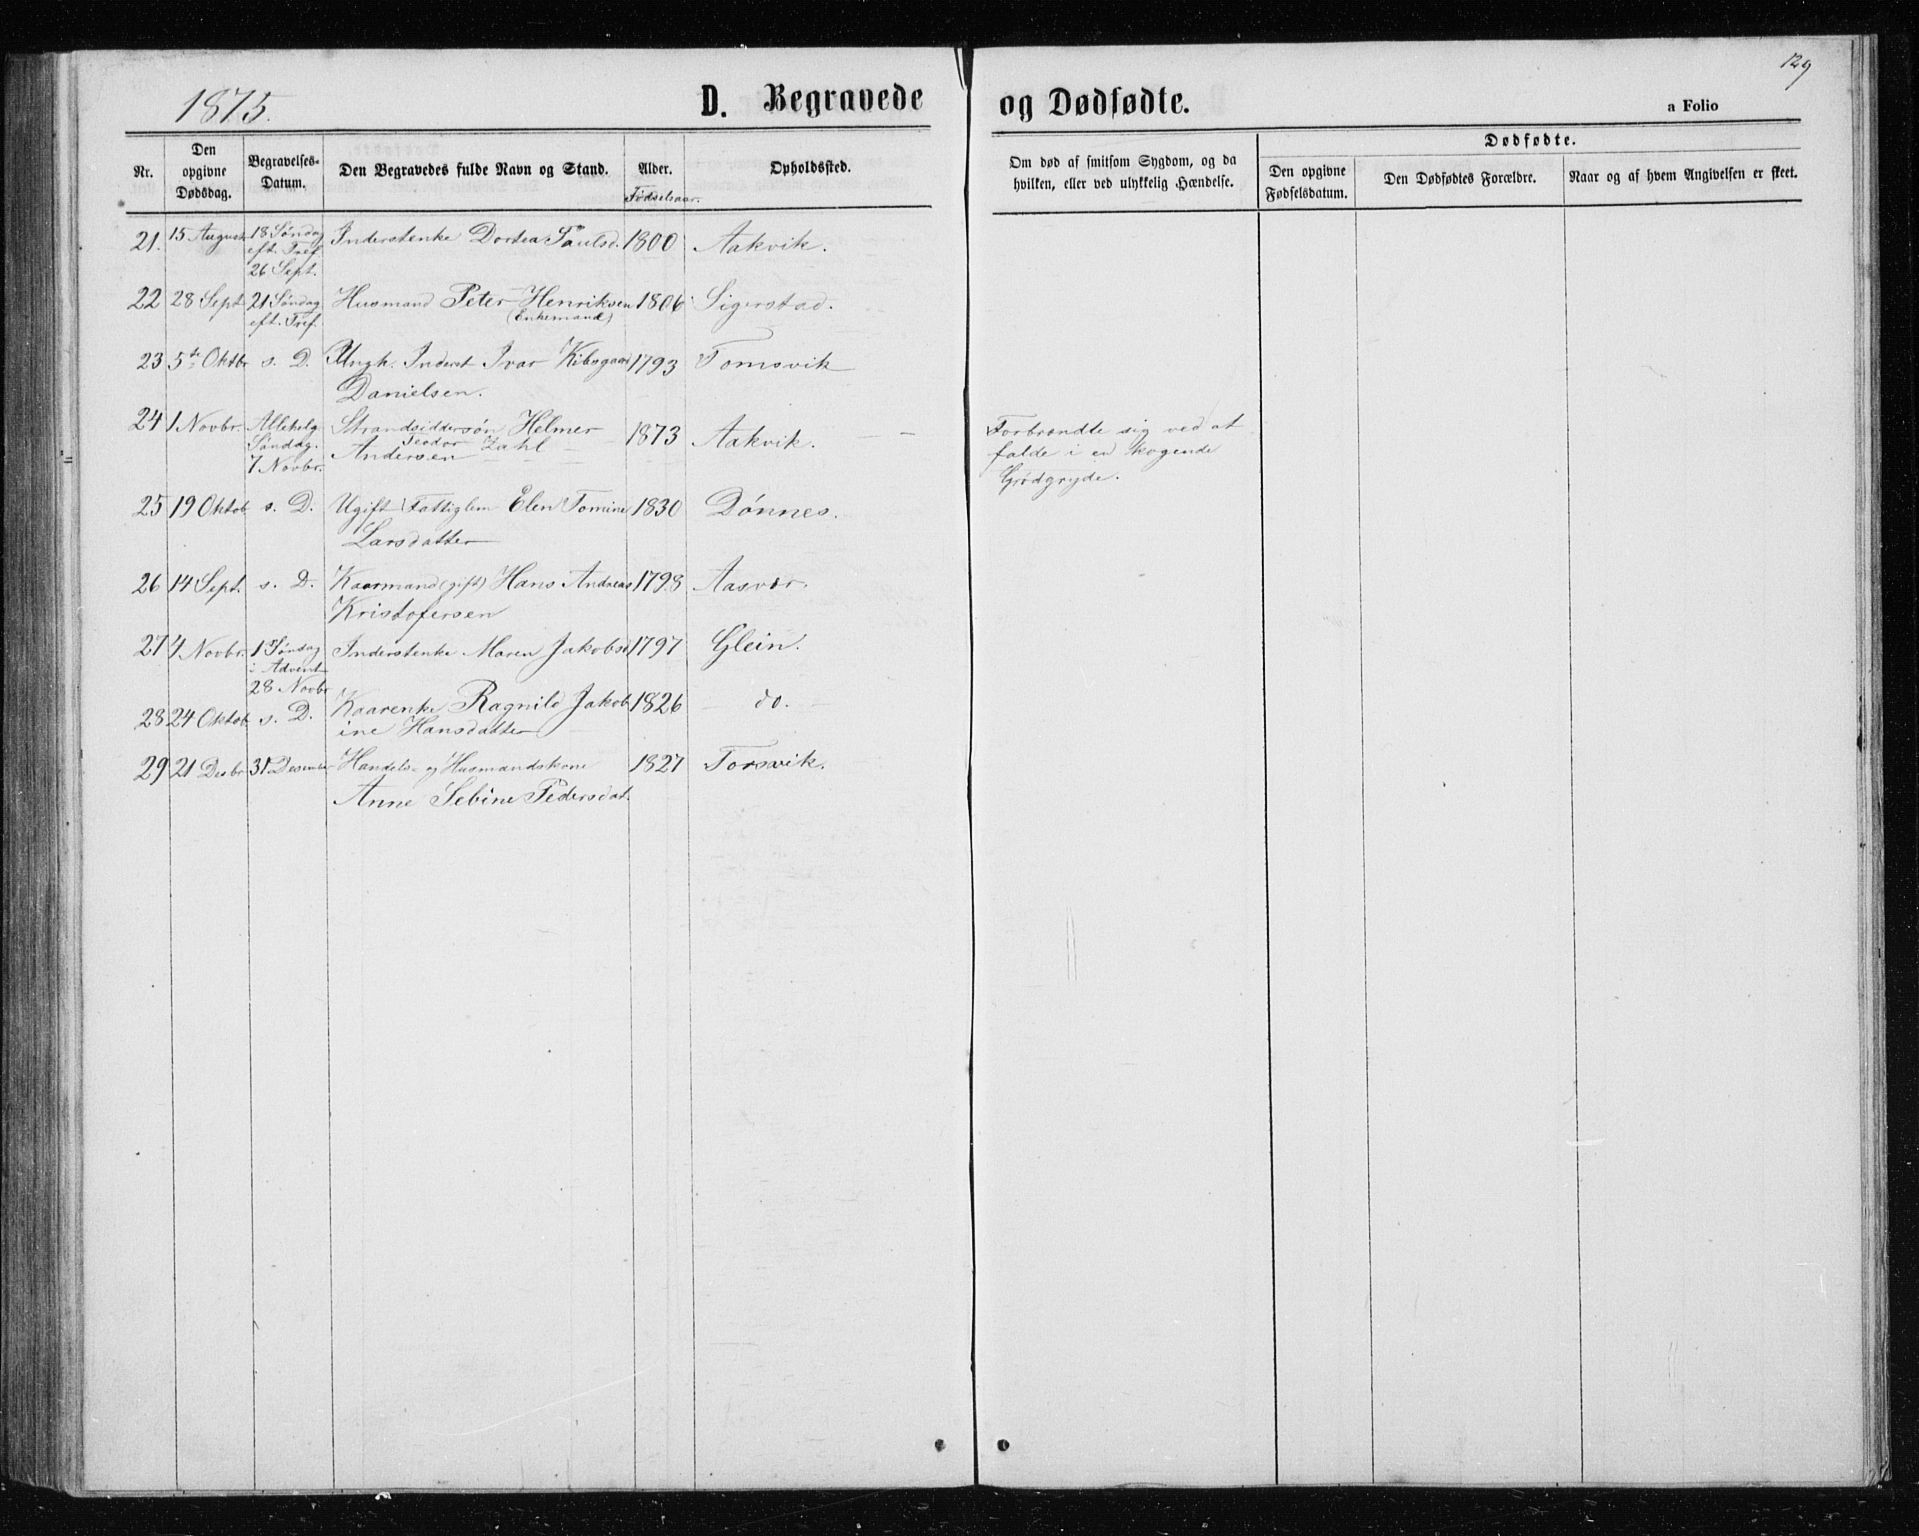 129
1875.
D. Begravede og Dødfødte.
a Folio
Nr.
Den opgivne Dødsdag.
Begravelses-Datum.
Den Begravedes fulde Navn og Stand.
Alder.
Fødselsaar.
Opholdssted.
Om død af smitsom Sygdom, og da hvilken, eller ved ulykkelig Hændelse.
Dødfødte.
Den opgivne Fødselsdatum.
Den Dødfødtes Forældre.
Naar og af hvem Angivelsen er skeet.
21. 15 August 18 Søndag Inderstenke Dortea Paulsd. 1800 Aakvik.
eft. Tref.
26 Sept.
22 28 Sept. 21 Søndag Husmand Peter Henriksen 1806 Sigerstad.
eft. Tref. (Enkemand)
23 5te Oktbr s. D. Ungk. Inderst Ivar Kibsgaard 1793 Tomsvik
Danielsen.
24 1 Novbr. Allehelg. Strandsiddersøn Helmer 1873 Aakvik. Forbrændte sig ved at
Søndag. Teodor
7 Novbr. Andersen Zahl falde i en kogende
Grødgryde.
25 19 Oktob s. D. Ugift Fattiglem Elen Tomine 1830 Dønnes.
Larsdatter
26 14 Sept. s. D. Kaarmand (gift) Hans Andreas 1798 Aasvær.
Kristofersen
27 4 Novbr. 1 Søndag Inderstenke Maren Jakobsd 1797 Glein.
i Advent
28 Novbr
28 24 Oktob s. D. Kaarenke Ragnild Jakob 1826 do.
ine Hansdatter
29 21 Desbr 31 Desember Handels- og Husmandskone 1827 Forsvik.
Anne Sebine Pedersdat.